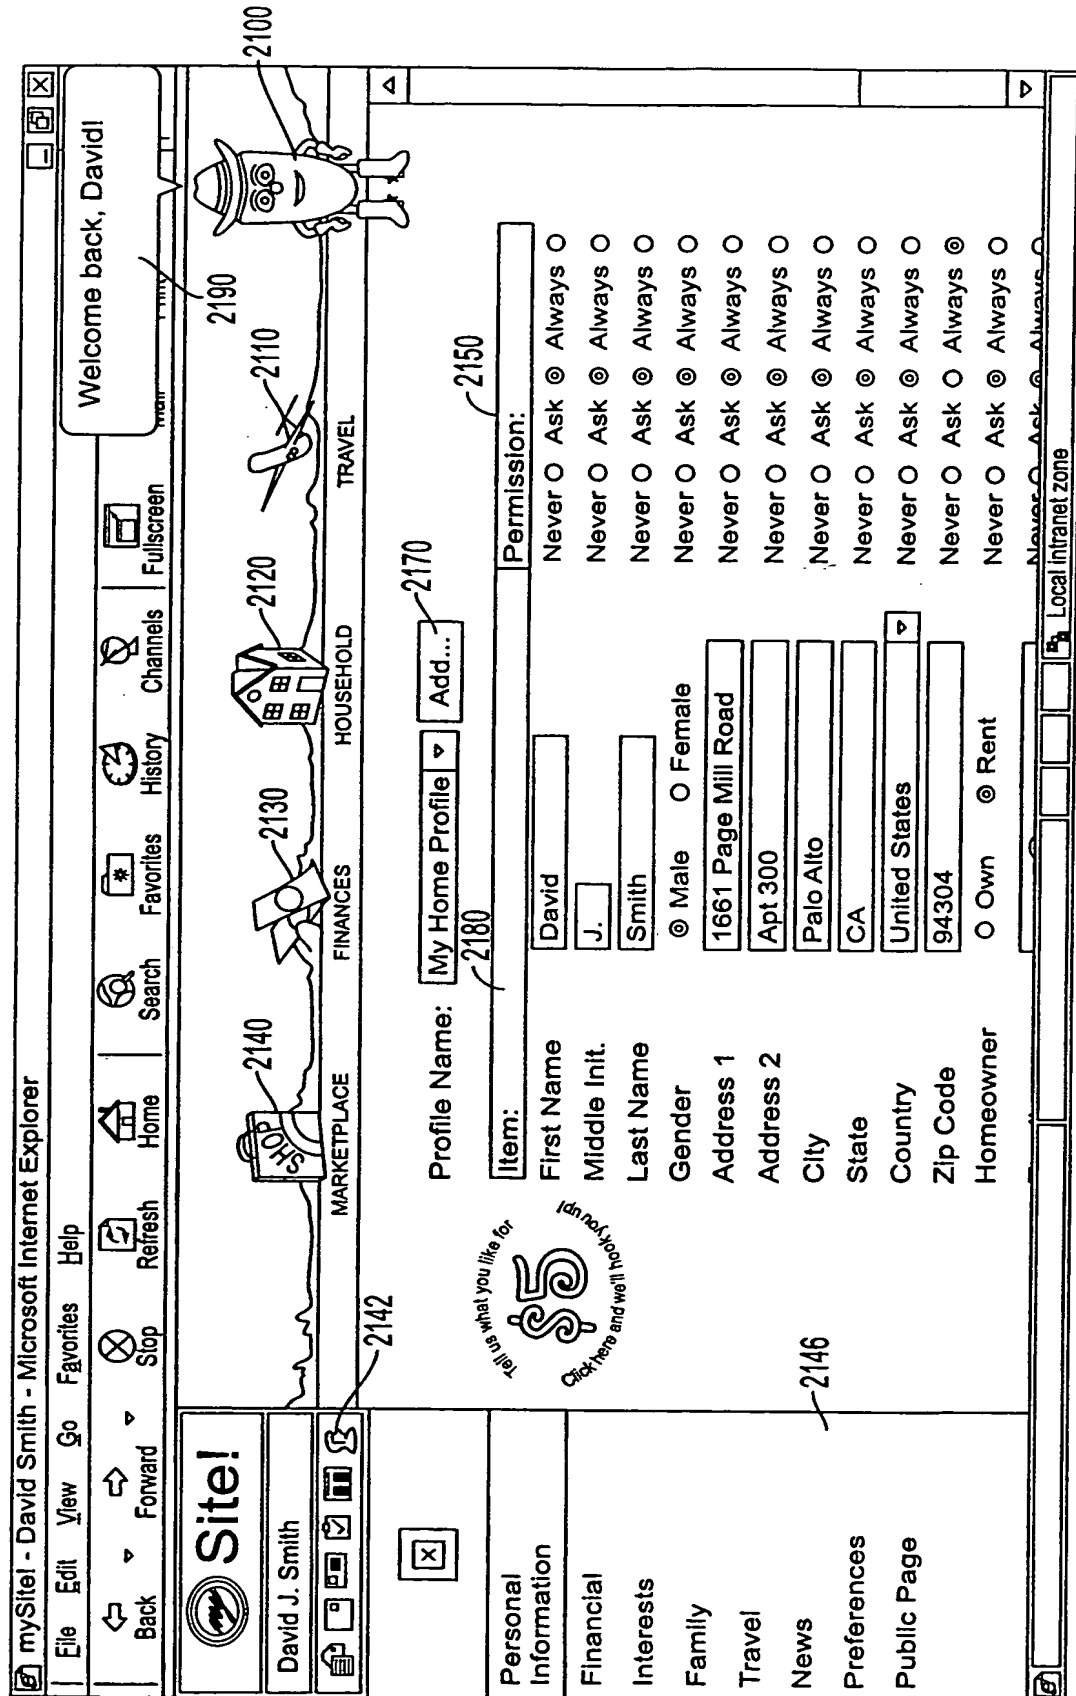 mySite! - David Smith - Microsoft Internet Explorer
File Edit View Go Favorites Help
Back Forward Stop Refresh Home Search Favorites History Channels Fullscreen Mail
Welcome back, David!
2190
my Site!
David J. Smith
2142
SHOP
2140
2130
2120
2110
2100
MARKETPLACE FINANCES HOUSEHOLD TRAVEL
Personal
Information
Financial
Interests
Family
Travel
News
Preferences
Public Page
2146
Tell us what you like for
$5
Click here and we'll hook you up!
Profile Name: My Home Profile Add...
2170
2180
2150
Item: Permission:
First Name David Never Ask Always
Middle Init. J. Never Ask Always
Last Name Smith Never Ask Always
Gender Male Female Never Ask Always
Address 1 1661 Page Mill Road Never Ask Always
Address 2 Apt 300 Never Ask Always
City Palo Alto Never Ask Always
State CA Never Ask Always
Country United States Never Ask Always
Zip Code 94304 Never Ask Always
Homeowner Own Rent Never Ask Always
Never Ask Always
Local intranet zone